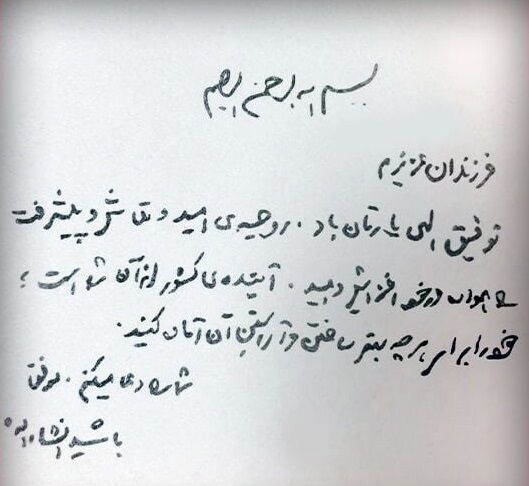 بسم الله الرحمن الرحیم
فرزندان عزیزم
توفیق الهی یارتان باد. روحیه‌ی امید و تلاش و پیشرفت
را همواره در خود افزایش دهید. آینده‌ی کشور از آن شما است؛
خود را برای هر چه بهتر ساختن و آراستن آن آماده کنید.
شما را دعا میکنم. موفق
باشید انشاءالله